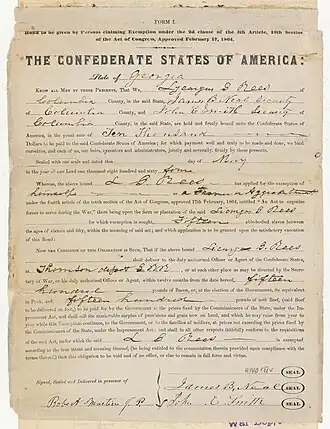 FORM I.
BOND to be given by Persons claiming Exemption under the 2d clause of the 4th Article, 10th Section
of the Act of Congress, Approved February 17, 1864.
THE CONFEDERATE STATES OF AMERICA:
State of Georgia
KNOW ALL MEN BY THESE PRESENTS, That We, Lycurgus G Rees of
Columbia County, in the said State, James B Neal Security
of Columbia County, and John E Smith Security of
Columbia County, in the said State, are held and firmly bound unto the Confederate States of
America, in the penal sum of Ten Thousand
Dollars to be paid to the said Confederate States of America; for which payment well and truly to be made and done, we bind
ourselves, and each of us, our heirs, executors and administrators, jointly and severally, firmly by these presents.
Sealed with our seals and dated this day of May
in the year of our Lord one thousand eight hundred and sixty four
Whereas, the above bound L G Rees has applied for the exemption of
himself
under the fourth article of the tenth section of the act of Congress, approved 17th February, 1864, entitled "An Act to organize
forces to serve during the War," there being upon the farm or plantation of the said Lycurgus G Rees
for which exemption is sought, Fifteen able-bodied slaves between the
ages of sixteen and fifty, within the meaning of said act; and which application is to be granted upon the satisfactory execution
of this Bond:
NOW THE CONDITION OF THIS OBLIGATION IS SUCH, That if the above bound Lycurgus G. Rees
shall deliver to the duly authorized Officer or Agent of the Confederate States, at
Thomson depot G RR, or at such other place as may be directed by the Secre-
tary of War, or his duly authorized Officer or Agent, within twelve months from the date hereof, fifteen
hundred pounds of Bacon, or at the election of the Government, its equivalent
in Pork, and fifteen hundred pounds of nett Beef, (said Beef
to be delivered on foot,) to be paid for by the Government at the prices fixed by the Commissioners of the State, under the Im-
pressment Act, and shall sell the marketable surplus of provisions and grain now on hand, and which he may raise from year to
year while this Exemption continues, to the Government, or to the families of soldiers, at prices not exceeding the prices fixed by
the Commissioners of the State, under the Impressment Act; and shall in all other respects faithfully conform to the requisitions
of the said Act, under which the said L G Rees is exempted
according to the true intent and meaning thereof, (he being entitled to the enumeration therein provided upon compliance with
terms thereof;) then this obligation to be void and of no effect, or else to remain in full force and virtue.
SEAL
Signed, Sealed and Delivered in presence of
James B. Neal SEAL
Robt A. Martin J. P. John E Smith SEAL